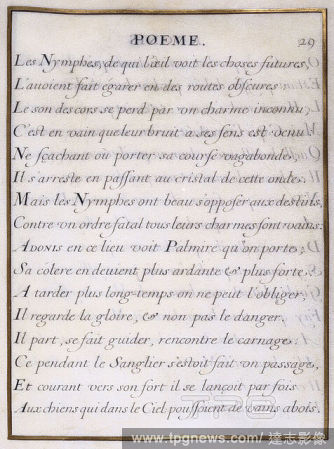 POEME. 29
Les Nymphes, de qui l'œil voit les choses futures,
L'auoient fait egarer en des routes obscures:
Le son des cors se perd par vn charme inconnu,
C'est en vain que leur bruit a ses sens est venu.
Ne sçachant où porter sa course vagabonde,
Il s'arreste en passant au cristal de cette onde.
Mais les Nymphes ont beau s'opposer aux destins,
Contre vn ordre fatal tous leurs charmes sont vains.
ADONIS en ce lieu voit Palmire qu'on porte;
Sa colere en deuient plus ardante & plus forte.
A tarder plus long-temps on ne peut l'obliger;
Il regarde la gloire, & non pas le danger.
Il part, se fait guider, rencontre le carnage.
Ce pendant le Sanglier s'estoit fait vn passage,
Et courant vers son fort il se lançoit par fois
Aux chiens qui dans le Ciel poussoient de vains abois.
TPG
www.tpgnews.com/ 達志影像